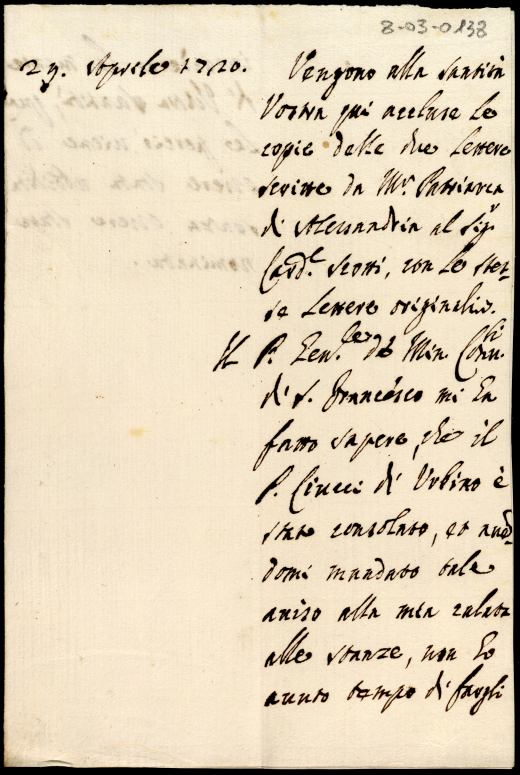 8-03-0138
29. Aprile 1720.
Vengono alla Santità
Vostra qui accluse le
copie delle due lettere
scritte da Mr. Patriarca
di Alessandria al Sigr.
Card.l Scotti, con le stes-
se lettere originali.
Il P. Gen.le de Min. Conv.li
di S. Francesco mi ha
fatto sapere, che il
P. Ciucci di Urbino è
stato consolato, et aven-
domi mandato tale
aviso alla mia calata
alle stanze, non ho
avuto tempo di fargli